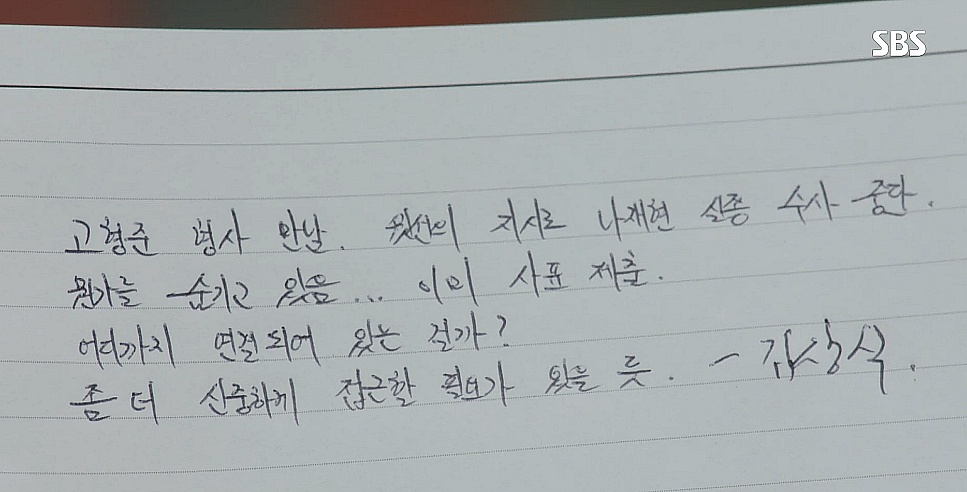 SBS
고형준 형사 만남. 윗선의 지시로 나재현 실종 수사 중단.
뭔가를 숨기고 있음... 이미 사표 제출.
어디까지 연결되어 있는 걸까?
좀 더 신중하게 접근할 필요가 있을 듯. - 김상식.